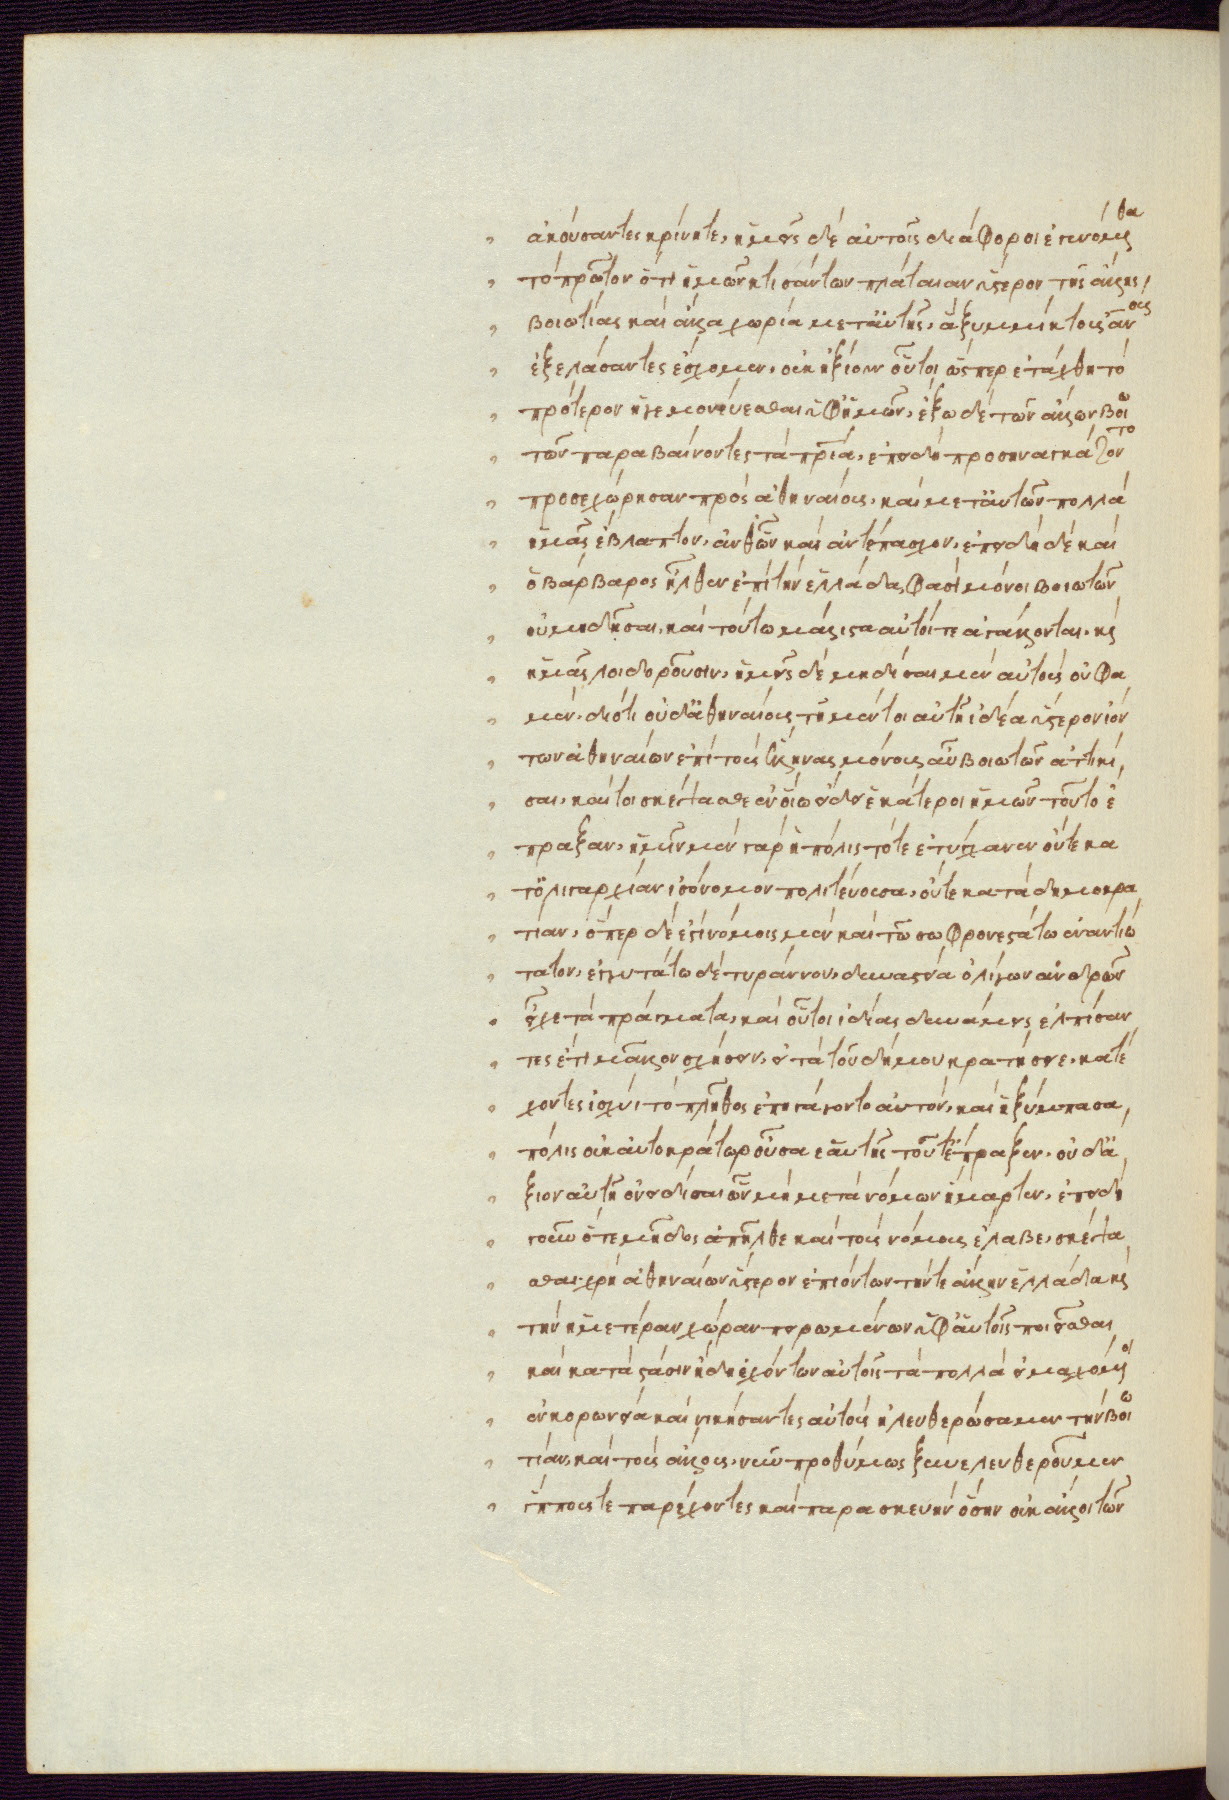 ἀκούσαντες κρίνητε, ἡμεῖς δὲ αὐτοῖς διάφοροι ἐγενόμεθα
τὸ πρῶτον ὅτι ἡμῶν κτισάντων πλάταιαν ὕστερον τῆς ἄλλης
βοιωτίας καὶ ἄλλα χωρία μετ' αὐτῆς, ἃ ξυμμίκτους ἀνους
ἐξελάσαντες ἔσχομεν, οὐκ ἠξίουν οὗτοι, ὥσπερ ἐτάχθη τὸ
πρότερον ἡγεμονεύεσθαι ὑφ' ἡμῶν, ἔξω δὲ τῶν ἄλλων βοιω
τῶν παραβαίνοντες τὰ πρια, ἐπειδὴ προσηναγκάζοντο
προσεχώρησαν πρὸς ἀθηναίους, καὶ μετ' αὐτῶν πολλὰ
ἡμᾶς ἔβλαπτον, ἀνθ' ὧν καὶ ἀντέπασχον, ἐπειδὴ δὲ καὶ
ὁ βάρβαρος ἦλθεν ἐπὶ τὴν ἑλλάδα, φασὶ μόνοι βοιωτῶν
οὐ μηδῆσαι, καὶ τούτω μάλιστα αὐτοί τε ἀγάλλονται, κς
ἡμᾶς λοιδοροῦσιν, ἡμεῖς δὲ μηδίσαι μὲν αὐτοὺς οὔ φα
μεν, διότι οὐδ' ἀθηναίους, τῇ μέντοι αὐτῇ ἰδέα ὕστερον ἰόν
των ἀθηναίων ἐπὶ τοὺς ἕλληνας μόνους αὖ βοιωτῶν ἀττικί
σαι, καίτοι σκέψασθε ἐν οἵω εἴδει ἑκάτεροι ἡμῶν τοῦτο ἔ
πραξαν, ἡμῖν μὲν γὰρ ἡ πόλις τότε ἐτύγχανεν οὔτε κα
τ' ὀλιγαρχίαν ἰσόνομον πολιτεύουσα, οὔτε κατὰ δημοκρα
τίαν, ὅπερ δέ ἐστι νόμοις μὲν καὶ τῶ σωφρονεστάτω ἐναντιώ
τατον, ἐγγυτάτω δὲ τυράννου, δυναστεία ὀλίγων ἀνδρῶν
εἶχε τὰ πράγματα, καὶ οὗτοι ἰδίας δυνάμεις ἐλπίσαν
τες ἔτι μᾶλλον σχήσειν, εἰ τὰ τοῦ δήμου κρατήσειε, κατέ
χοντες ἰσχύϊ τὸ πλῆθος ἐπηγάγοντο αὐτόν, καὶ ἡ ξύμπασα
πόλις οὐκ αὐτοκράτωρ οὖσα ἑαυτῆς τοῦτ' ἔπραξεν, οὐδ' ἄ
ξιον αὐτῇ ὀνειδίσαι ὧν μὴ μετὰ νόμων ἥμαρτεν, ἐπειδὴ
γοῦν ὅ τε μῆδος ἀπῆλθε καὶ τοὺς νόμους ἔλαβε, σκέψα
σθαι χρὴ ἀθηναίων ὕστερον ἐπιόντων τήν τε ἄλλην ἑλλάδα κς
τὴν ἡμετέραν χώραν πειρωμένων ὑφ' αὑτοῖς ποιεῖσθαι
καὶ κατὰ στάσιν ἤδη ἐχόντων αὐτοῖς τὰ πολλὰ εἰ μαχόμενοι
ἐν κορωνεία καὶ νικήσαντες αὐτοὺς ἠλευθερώσαμεν τὴν βοιω
τίαν, καὶ τοὺς ἄλλους, νῦν προθύμως ξυνελευθεροῦμεν
ἵππους τε παρέχοντες καὶ παρασκευὴν ὅσην οὐκ ἄλλοι τῶν